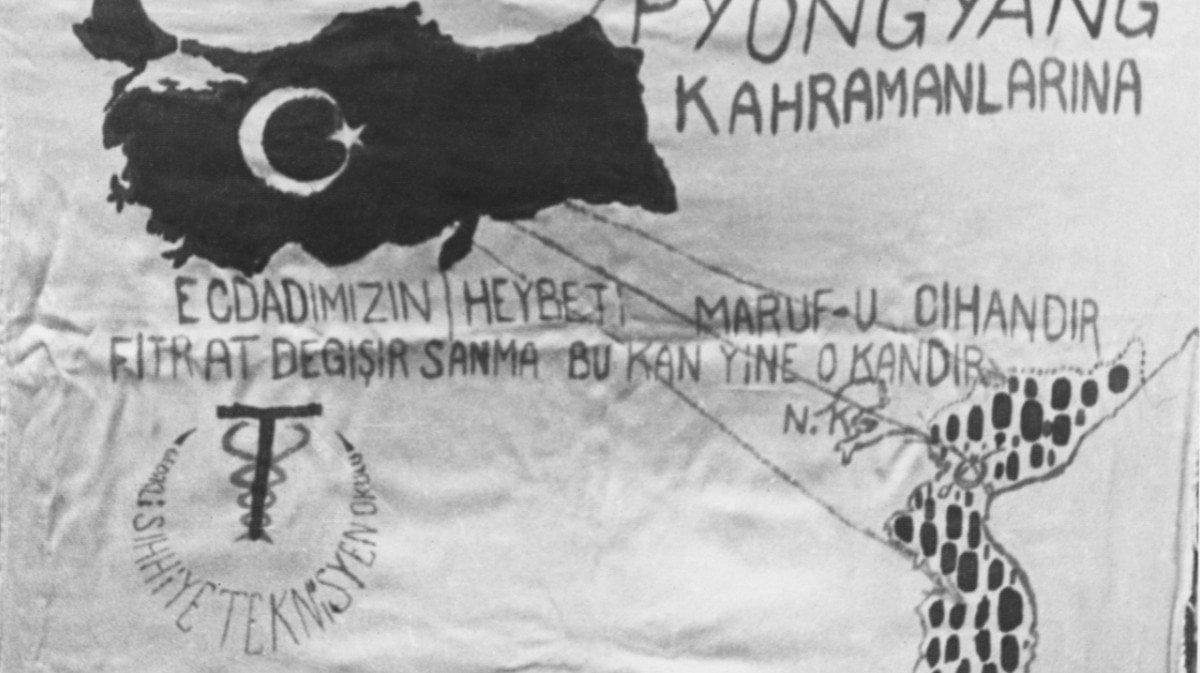 PYONGYANG
KAHRAMANLARINA
ECDADIMIZIN HEYBETİ MARUF-U CİHANDIR
FITRAT DEĞİŞİR SANMA BU KAN YİNE O KANDIR
N.K.
SIHHİYE TEKNİSYEN OKULU